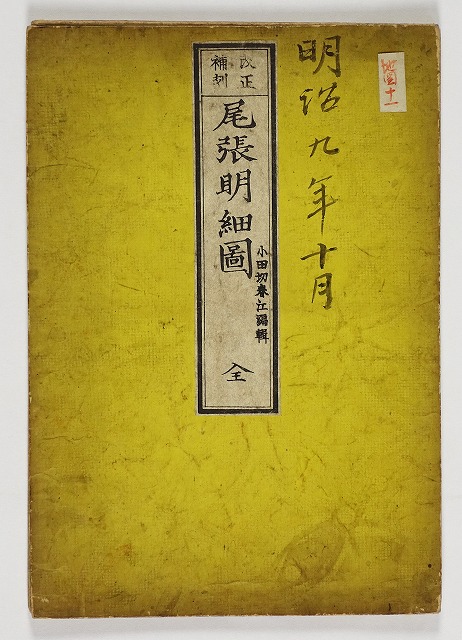 地図十一
明治九年十月
改正
補刻
尾張明細圖
小田切春江編輯
全